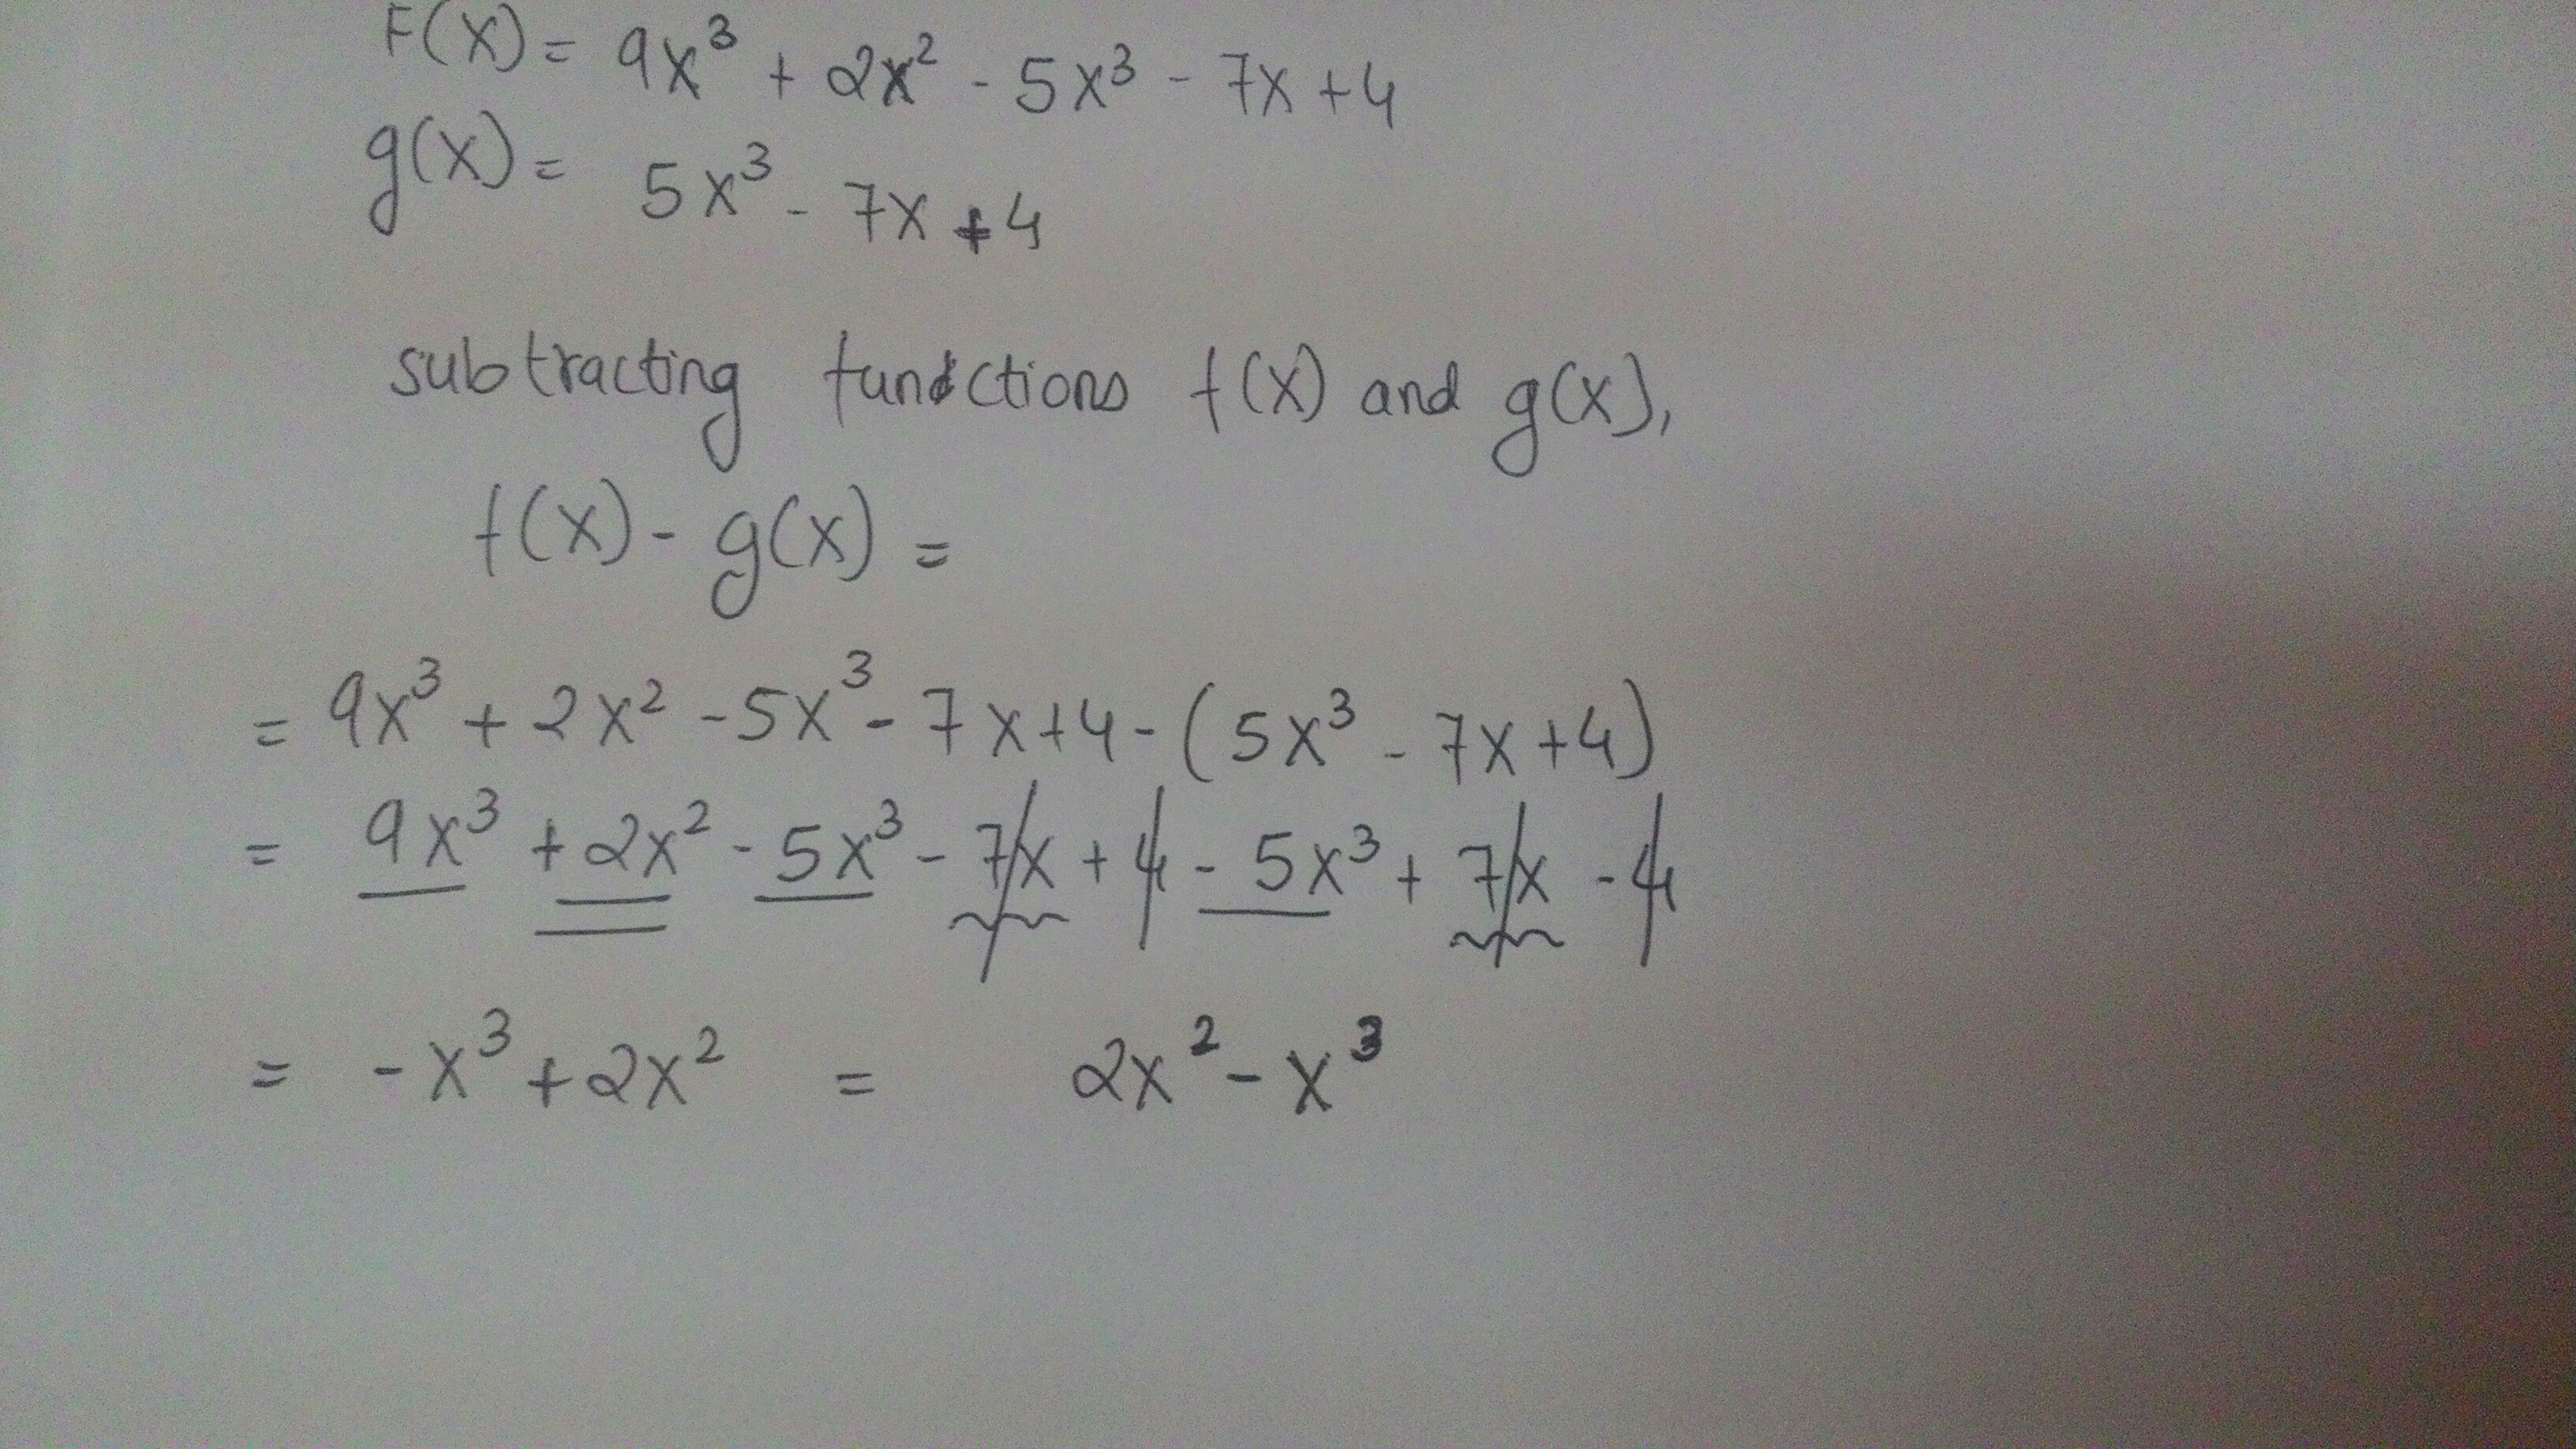 F(x) = 9x³ + 2x² - 5x³ - 7x + 4
g(x) = 5x³ - 7x + 4
subtracting functions f(x) and g(x),
f(x) - g(x) =
= 9x³ + 2x² - 5x³ - 7x + 4 - (5x³ - 7x + 4)
= 9x³ + 2x² - 5x³ - 7x + 4 - 5x³ + 7x - 4
= -x³ + 2x² = 2x² - x³